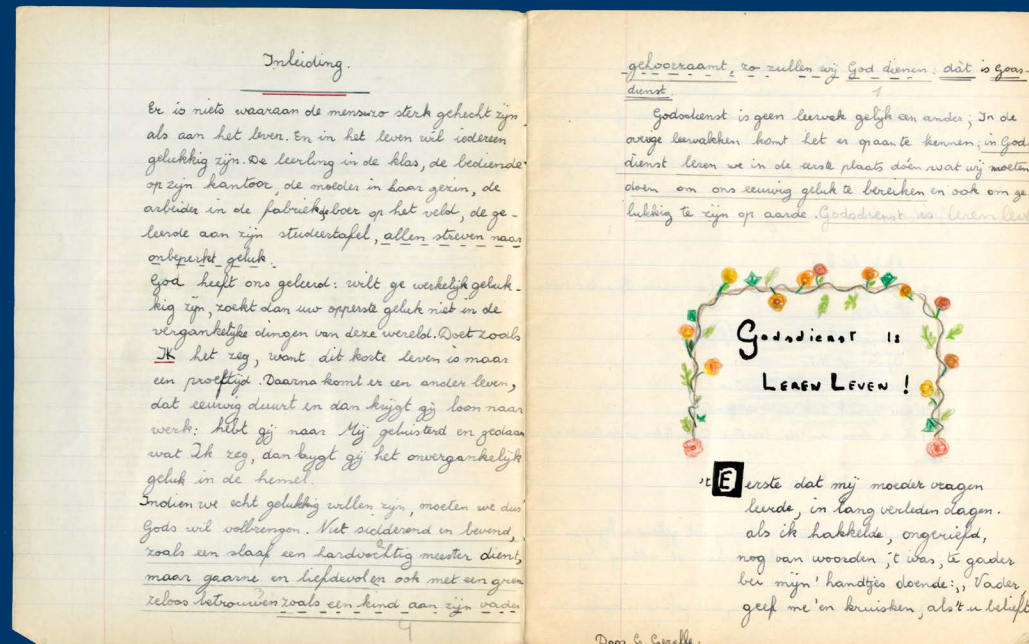 Inleiding.
Er is niets waaraan de mens zo sterk gehecht zijn
als aan het leven. En in het leven wil iedereen
gelukkig zijn. De leerling in de klas, de bediende
op zijn kantoor, de moeder in haar gezin, de
arbeider in de fabriek, de boer op het veld, de ge-
leerde aan zijn studeertafel, allen streven naar
onbeperkt geluk.
God heeft ons geleerd: wilt ge werkelijk geluk-
kig zijn, zoekt dan uw opperste geluk niet in de
vergankelijke dingen van deze wereld. Doet zoals
IK het zeg, want dit korte leven is maar
een proeftijd. Daarna komt er een ander leven,
dat eeuwig duurt en dan krijgt gij loon naar
werk: hebt gij naar Mij geluisterd en gedaan
wat Ik zeg, dan krijgt gij het onvergankelijk
geluk in de hemel.
Indien we echt gelukkig willen zijn, moeten we dus
Gods wil volbrengen. Niet sidderend en bevend,
zoals een slaaf een hardvochtig meester dient,
maar gaarne en liefdevol en ook met een gren
zeloos betrouwen zoals een kind aan zijn vader
gehoorzaamt, zo zullen wij God dienen: dàt is Gods-
dienst.
1
Godsdienst is geen leervak gelijk een ander; In de
overige leervakken komt het er op aan te kennen; in Gods
dienst leren we in de eerste plaats dóen wat wij moeten
doen om ons eeuwig geluk te bereiken en ook om ge
lukkig te zijn op aarde. Godsdienst is leren leve
Godsdienst is
Leren Leven !
't Eerste dat mij moeder vragen
leerde, in lang verleden dagen.
als ik hakkelde, ongeriefd,
nog van woorden, 't was, te gader
bei mijn' handtjes doende:,, Vader
geef me 'en kruisken, als 't u belieft
Door G. Gezelle.